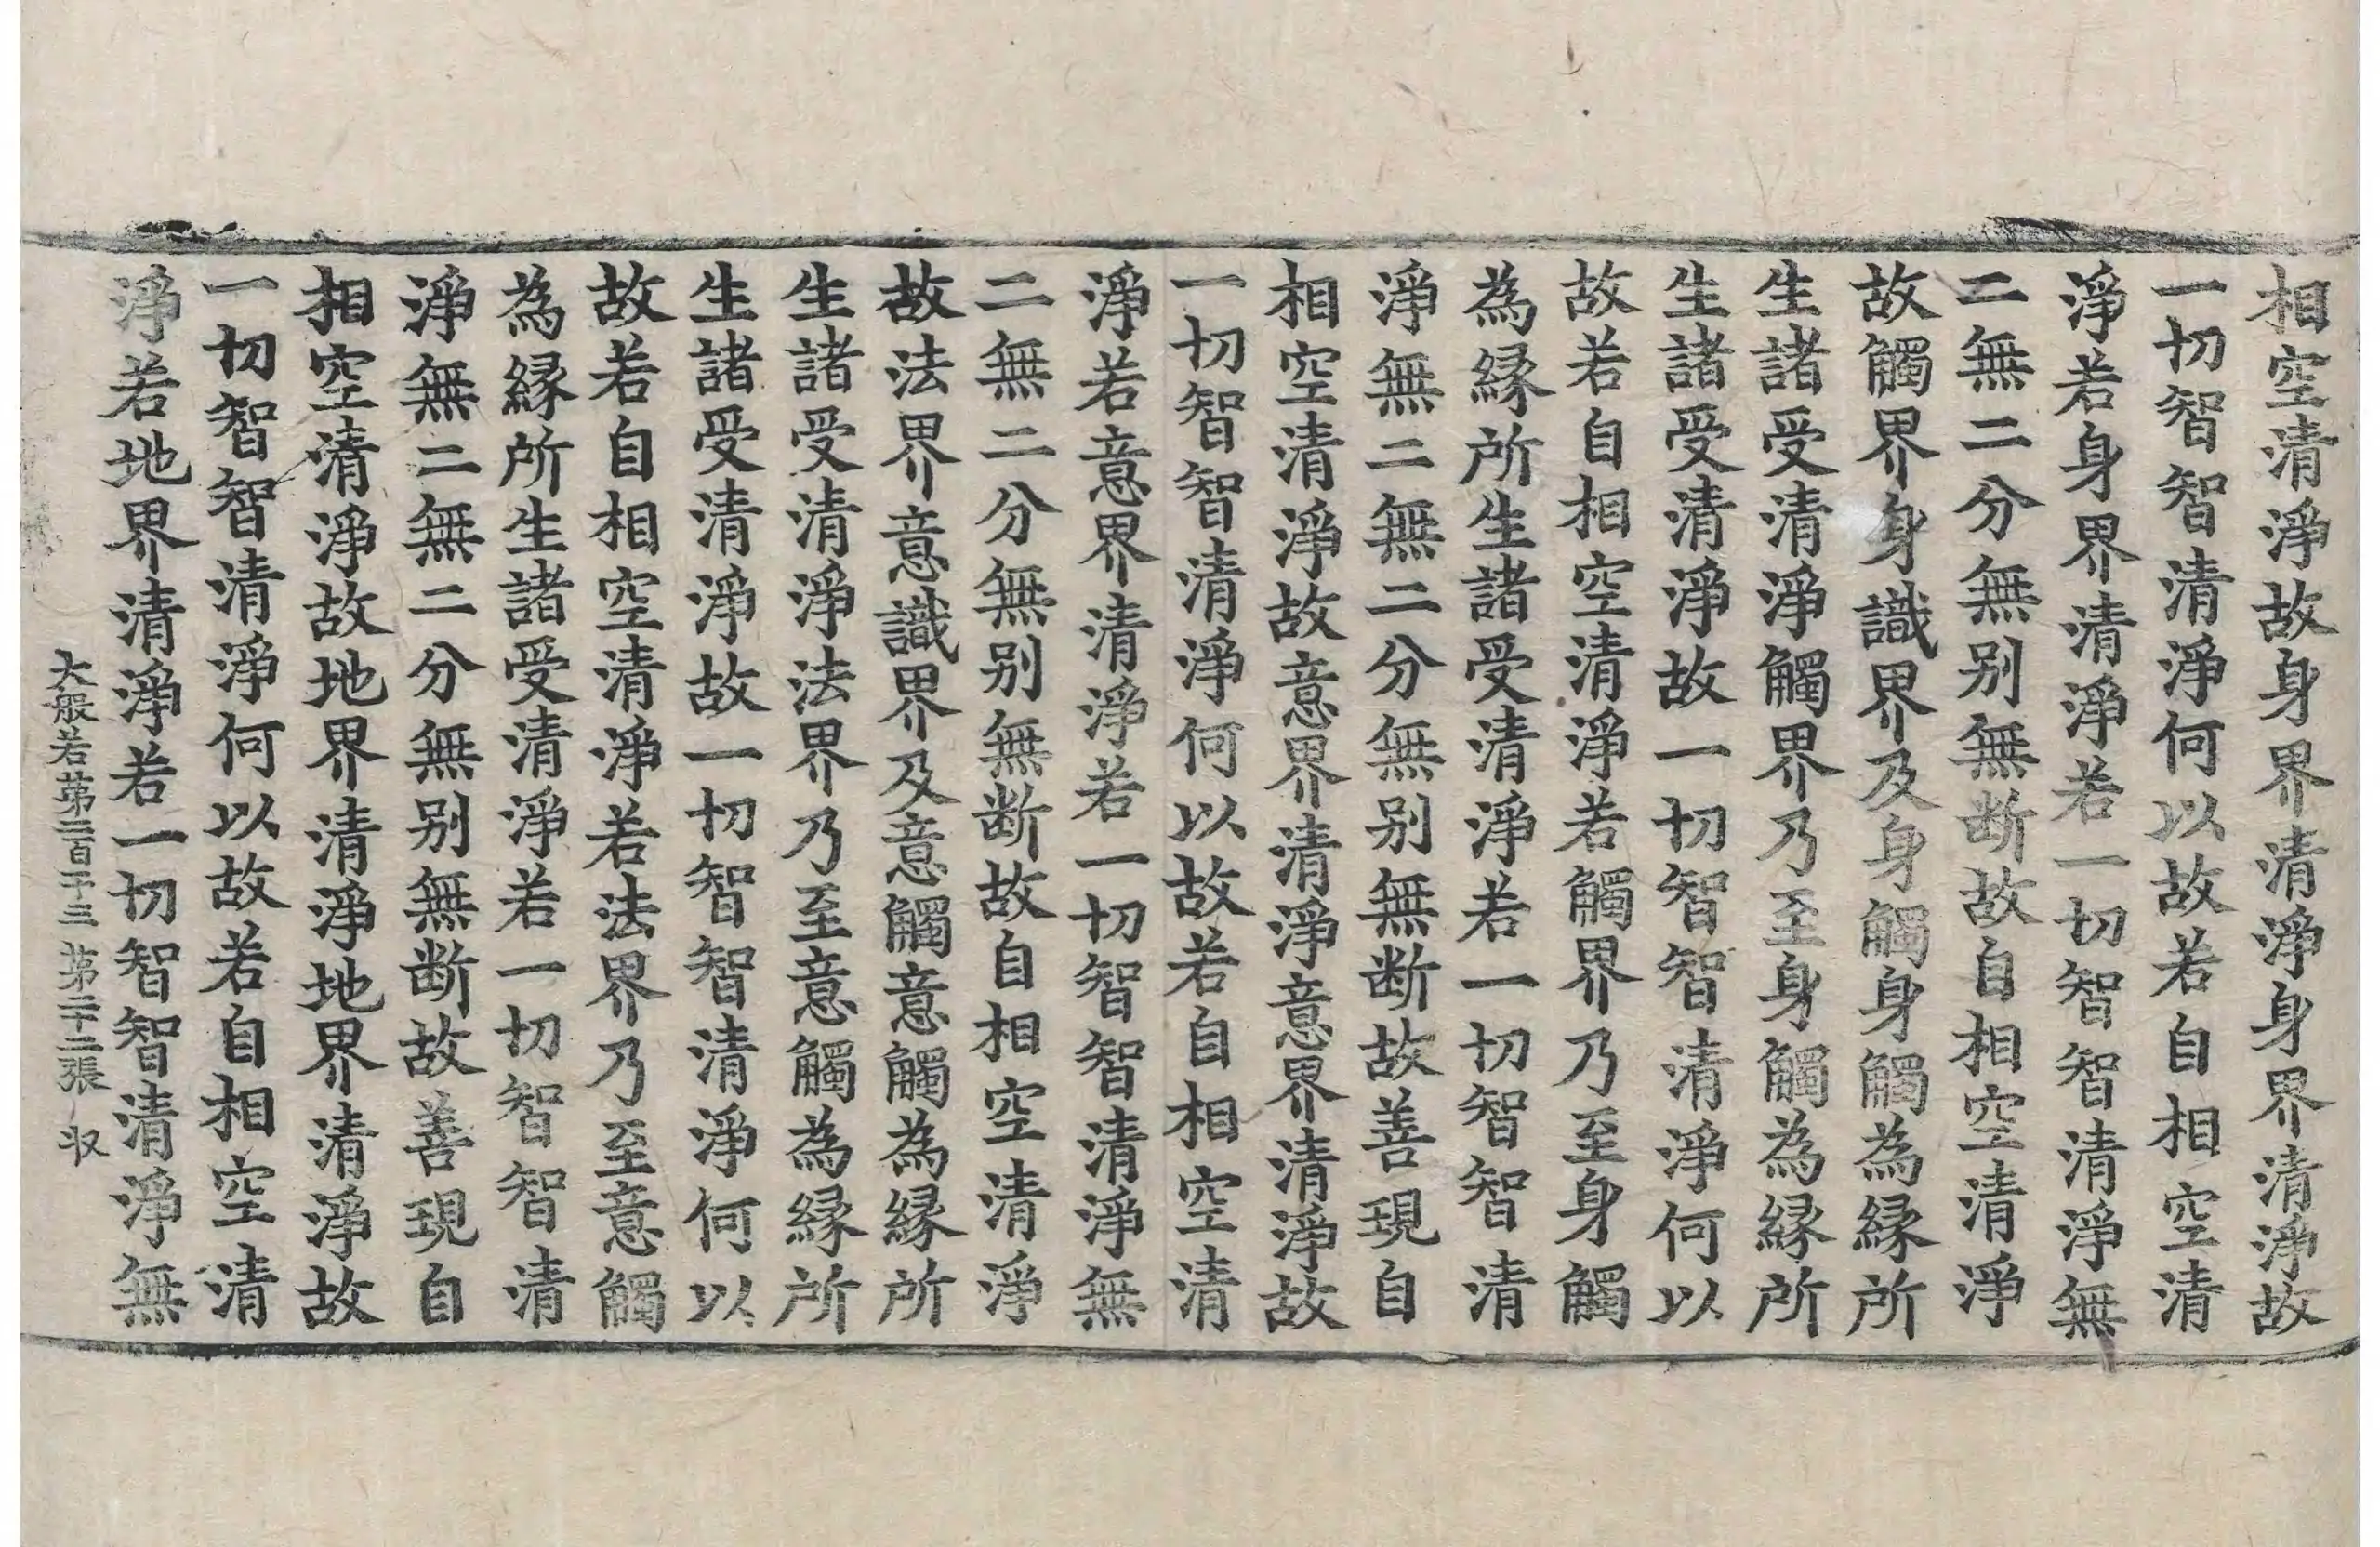 相空清淨故身界清淨身界清淨故
一切智智清淨何以故若自相空清
淨若身界清淨若一切智智清淨無
二無二分無别無断故自相空清淨
故觸界身識界及身觸身觸為縁所
生諸受清淨觸界乃至身觸為縁所
生諸受清淨故一切智智清淨何以
故若自相空清淨若觸界乃至身觸
為縁所生諸受清淨若一切智智清
淨無二無二分無别無断故善現自
相空清淨故意界清淨意界清淨故
一切智智清淨何以故若自相空清
淨若意界清淨若一切智智清淨無
二無二分無别無断故自相空清淨
故法界意識界及意觸意觸為縁所
生諸受清淨法界乃至意觸為縁所
生諸受清淨故一切智智清淨何以
故若自相空清淨若法界乃至意觸
為縁所生諸受清淨若一切智智清
淨無二無二分無别無断故善現自
相空清淨故地界清淨地界清淨故
一切智智清淨何以故若自相空清
淨若地界清淨若一切智智清淨無
大般若苐二百一十三 苐二十二張 収